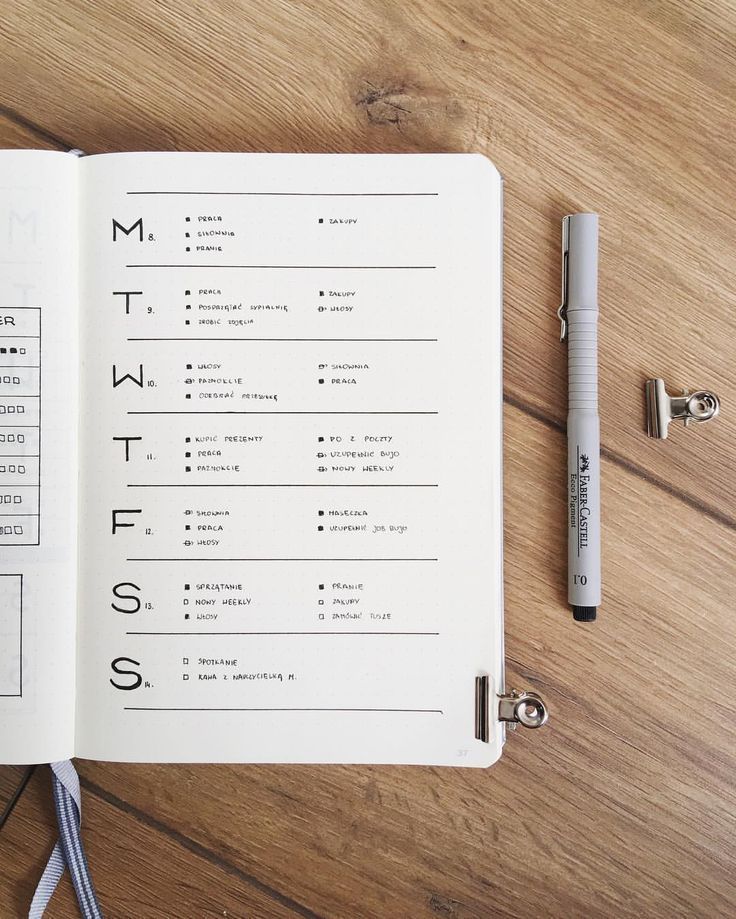 ER
M 8.
PRACA
SIŁOWNIA
PRANIE
ZAKUPY
T 9.
PRACA
POSPRZĄTAĆ SYPIALNIĘ
ZROBIĆ ZDJĘCIA
ZAKUPY
WŁOSY
W 10.
WŁOSY
PAZNOKCIE
ODEBRAĆ PRZESYŁKĘ
SIŁOWNIA
PRACA
T 11.
KUPIĆ PREZENTY
PRACA
PAZNOKCIE
PO Z POCZTY
UZUPEŁNIĆ BUJO
NOWY WEEKLY
F 12.
SIŁOWNIA
PRACA
WŁOSY
MASECZKA
UZUPEŁNIĆ JOB BUJO
S 13.
SPRZĄTANIE
NOWY WEEKLY
WŁOSY
PRANIE
ZAKUPY
ZAMÓWIĆ TUSZE
S 14.
SPOTKANIE
KAWA Z M.
37
FABER-CASTELL
Ecco Pigment
0.1